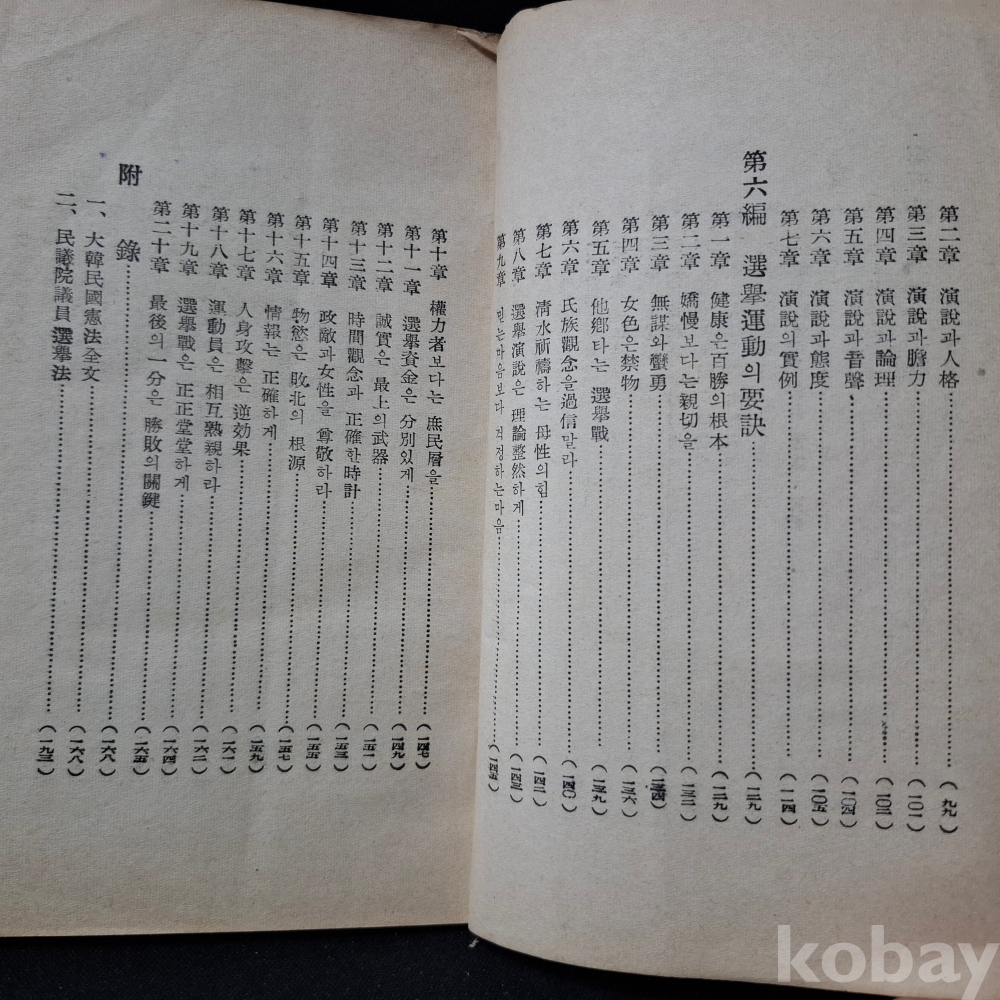 第二章 演說과人格…(九九)
第三章 演說과膽力…(一〇一)
第四章 演說과論理…(一〇二)
第五章 演說과音聲…(一〇四)
第六章 演說과態度…(一〇五)
第七章 演說의實例…(一一四)
第六編 選擧運動의要訣…(一二九)
第一章 健康은百勝의根本…(一二九)
第二章 嬌慢보다는親切을…(一三二)
第三章 無謀와蠻勇…(一三四)
第四章 女色은禁物…(一三六)
第五章 他鄕타는 選擧戰…(一三九)
第六章 民族觀念을過信말라…(一四〇)
第七章 淸水祈禱하는 母性의힘…(一四二)
第八章 選擧演說은 理論整然하게…(一四三)
第九章 믿는마음보다 걱정하는마음…(一四五)
第十章 權力者보다는 庶民層을…(一四七)
第十一章 選擧資金은 分別있게…(一四九)
第十二章 誠實은 最上의武器…(一五一)
第十三章 時間觀念과 正確한時計…(一五三)
第十四章 政敵과女性을 尊敬하라…(一五五)
第十五章 物慾은 敗北의 根源…(一五七)
第十六章 情報는 正確하게…(一五九)
第十七章 人身攻擊은 逆效果…(一六一)
第十八章 運動員은 相互熟親하라…(一六二)
第十九章 選擧戰은 正正堂堂하게…(一六四)
第二十章 最後의一分은 勝敗의關鍵…(一六五)
附 錄…(一六八)
一、大韓民國憲法全文…(一六八)
二、民議院議員 選擧法…(一九三)
kobay